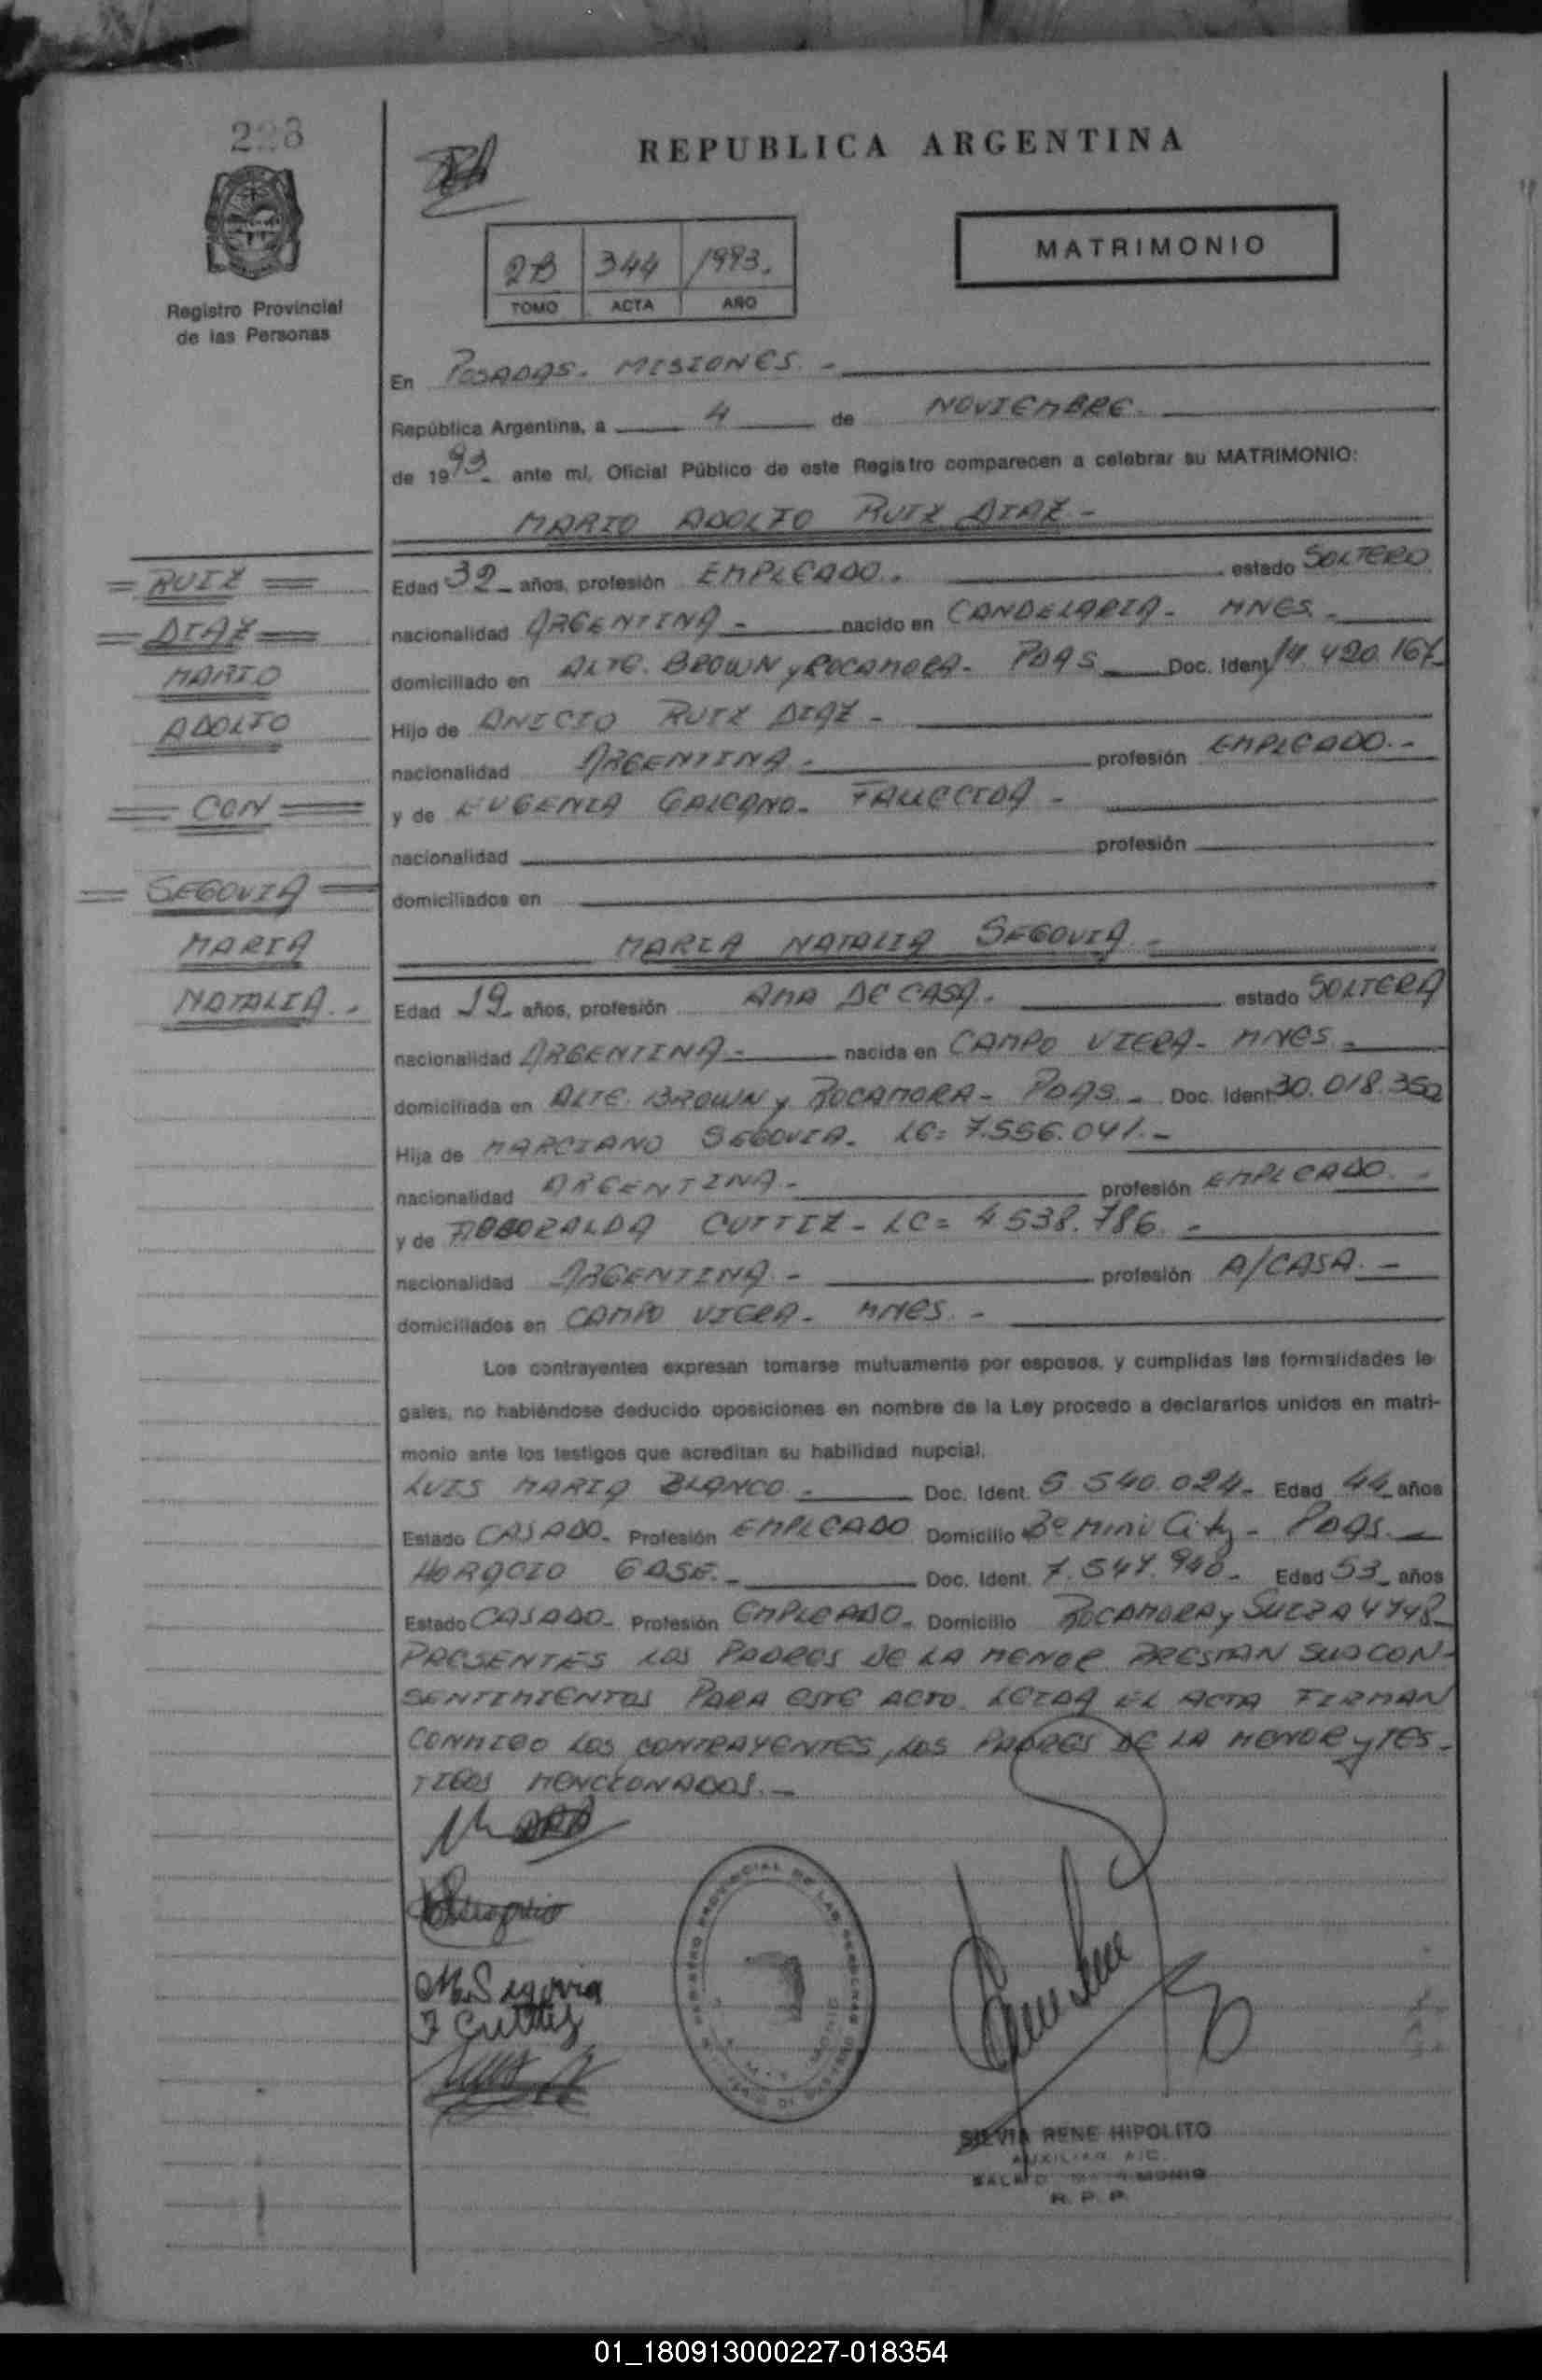 REPUBLICA ARGENTINA
MATRIMONIO
2B 344 1993.
TOMO ACTA AÑO
Registro Provincial
de las Personas
En POSADAS. MISIONES. -
República Argentina, a 4 de NOVIEMBRE.
de 1993 ante mí, Oficial Público de este Registro comparecen a celebrar su MATRIMONIO:
MARIO ADOLFO RUIZ DIAZ -
= RUIZ =
= DIAZ =
MARIO
ADOLFO
= CON =
= SEGOVIA =
MARIA
NATALIA. -
Edad 32 años, profesión EMPLEADO. estado SOLTERO
nacionalidad ARGENTINA - nacido en CANDELARIA - MNES. -
domiciliado en ALTE. BROWN y ROCAMORA - PDAS Doc. Ident 14.420.167
Hijo de ANICIO RUIZ DIAZ -
nacionalidad ARGENTINA - profesión EMPLEADO. -
y de EUGENIA GALEANO - FALLECIDA -
nacionalidad profesión
domiciliados en
MARIA NATALIA SEGOVIA -
Edad 19 años, profesión AMA DE CASA. estado SOLTERA
nacionalidad ARGENTINA - nacida en CAMPO VIERA - MNES. -
domiciliada en ALTE. BROWN y ROCAMORA - PDAS. - Doc. Ident 30.018.352
Hija de MARCIANO SEGOVIA. LE= 7.556.041. -
nacionalidad ARGENTINA. - profesión EMPLEADO. -
y de CUTTIZ - LC= 4.538.786. -
nacionalidad ARGENTINA. - profesión A/CASA. -
domiciliados en CAMPO VIERA - MNES. -
Los contrayentes expresan tomarse mutuamente por esposos, y cumplidas las formalidades le
gales, no habiéndose deducido oposiciones en nombre de la Ley procedo a declararlos unidos en matri-
monio ante los testigos que acreditan su habilidad nupcial.
LUIS MARIA BLANCO - Doc. Ident. 5.540.024 - Edad 44 años
Estado CASADO - Profesión EMPLEADO Domicilio Bº Mini City - PDAS. -
HORACIO GASE. - Doc. Ident. 7.547.940 - Edad 53 años
Estado CASADO - Profesión EMPLEADO - Domicilio ROCAMORA y SUIZA 4748
PRESENTES LOS PADRES DE LA MENOR PRESTAN SUS CON-
SENTIMIENTOS PARA ESTE ACTO. LEIDA EL ACTA FIRMAN
CONMIGO LOS CONTRAYENTES, LOS PADRES DE LA MENOR y TES-
TIGOS MENCIONADOS. -
M. Segovia
F Cuttiz
SILVIA RENE HIPOLITO
AUXILIAR
R. P. P.
01_180913000227-018354